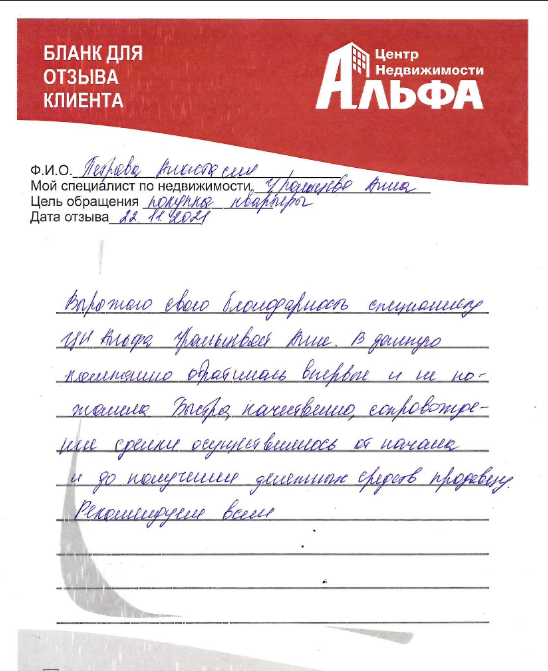 БЛАНК ДЛЯ
ОТЗЫВА
КЛИЕНТА
Центр
Недвижимости
АЛЬФА
Ф.И.О. Петрова Анастасия
Мой специалист по недвижимости Анна
Цель обращения покупка квартиры
Дата отзыва 22.11.2021
Выражаю свою благодарность специалисту
ЦН Альфа Анне. В данную
компанию обратилась впервые и не по-
жалела Быстро, качественно, сопровожде-
ние сделки осуществлялось от начала
и до получения денежных средств продавцу.
Рекомендуем всем